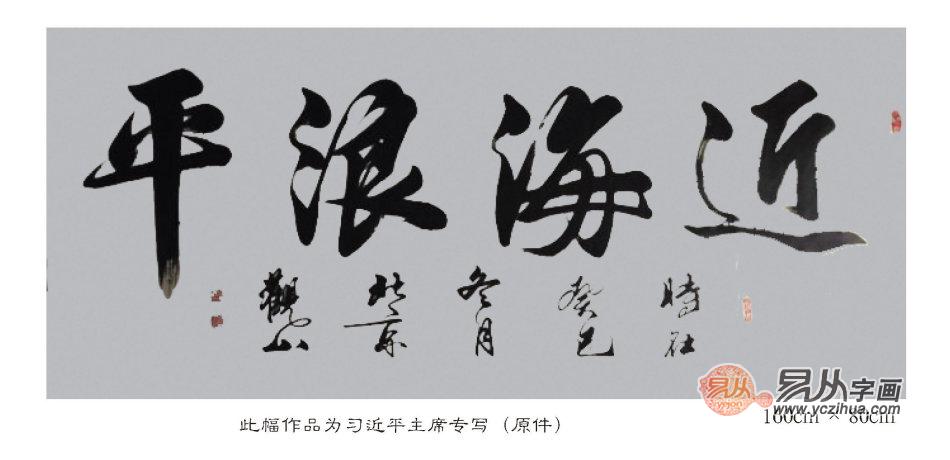 近海浪平
時在
癸巳
冬月
於京
觀山
易从字画
www.yczihua.com
160cm × 80cm
此幅作品为习近平主席专写（原件）